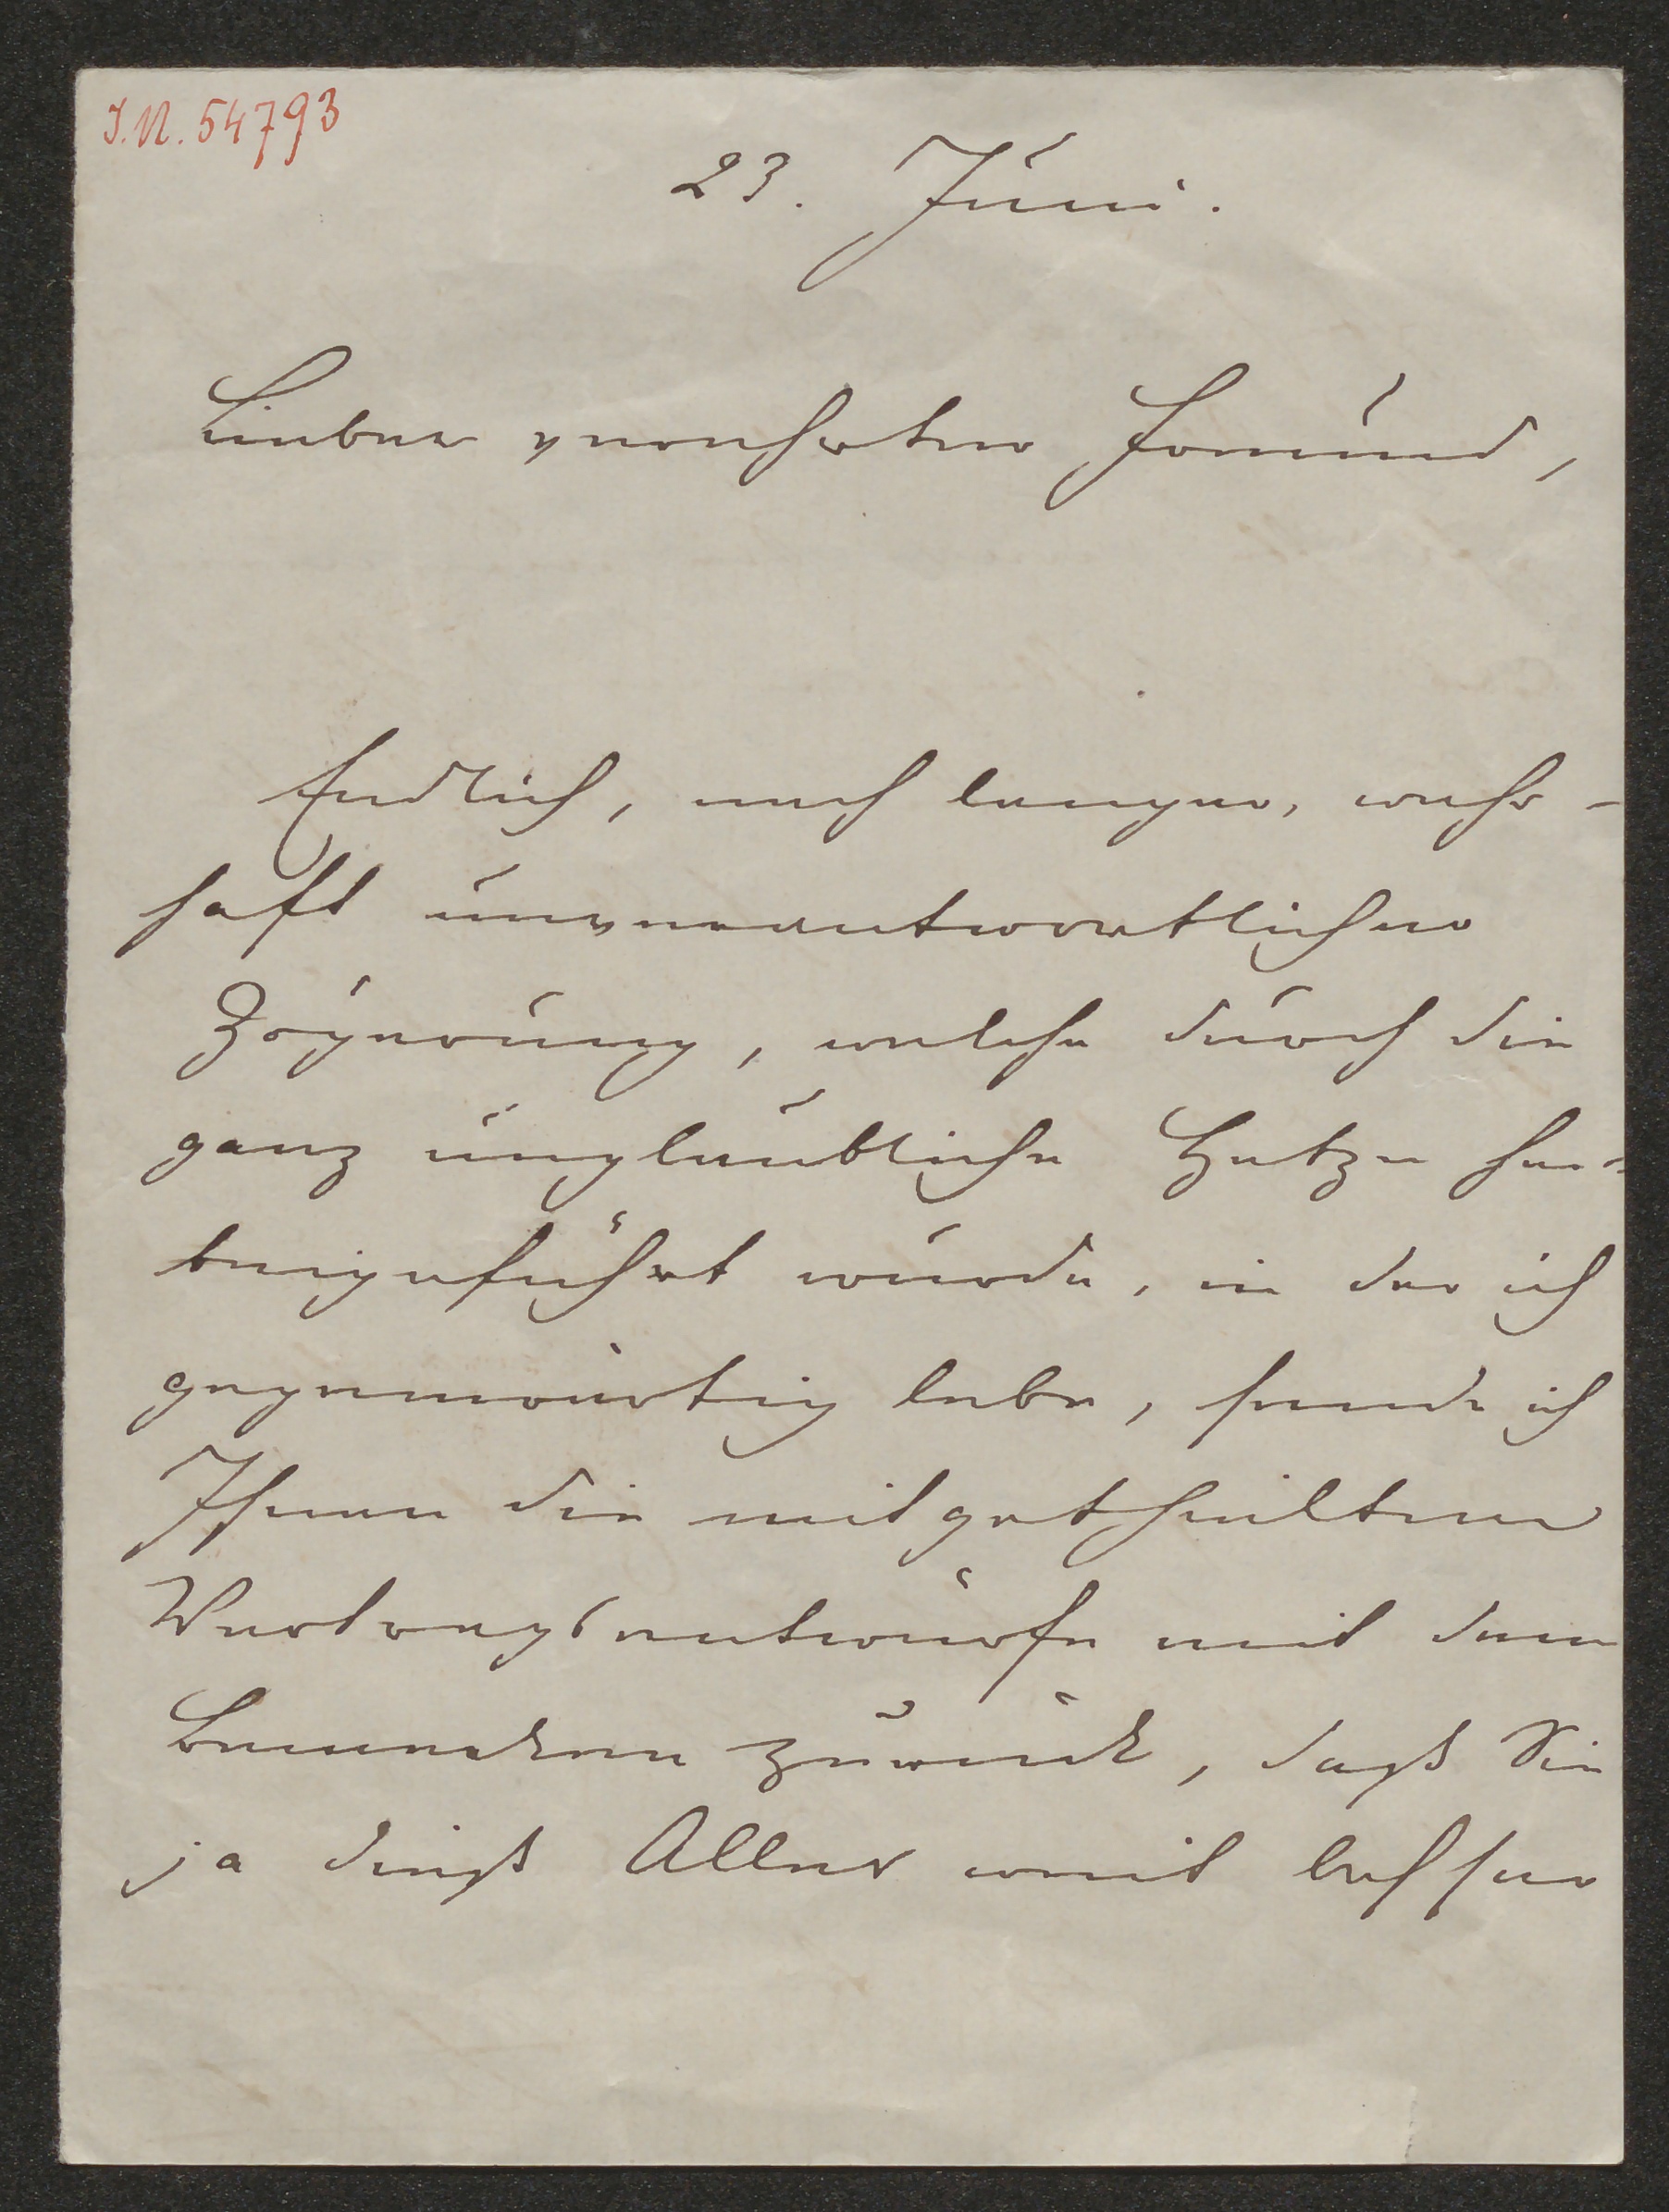 I.N. 54793
23. Juni.
Lieber verehrter Freund,
Endlich, nach langer, wahr-
haft unverantwortlicher
Zögerung, welche durch die
ganz unglaubliche Hetze her-
beigeführt wurde, in der ich
gegenwärtig lebe, sende ich
Ihnen die mitgetheilten
Vertragsentwürfe mit dem
Bemerken zurück, dass Sie
ja dieß Alles weit besser